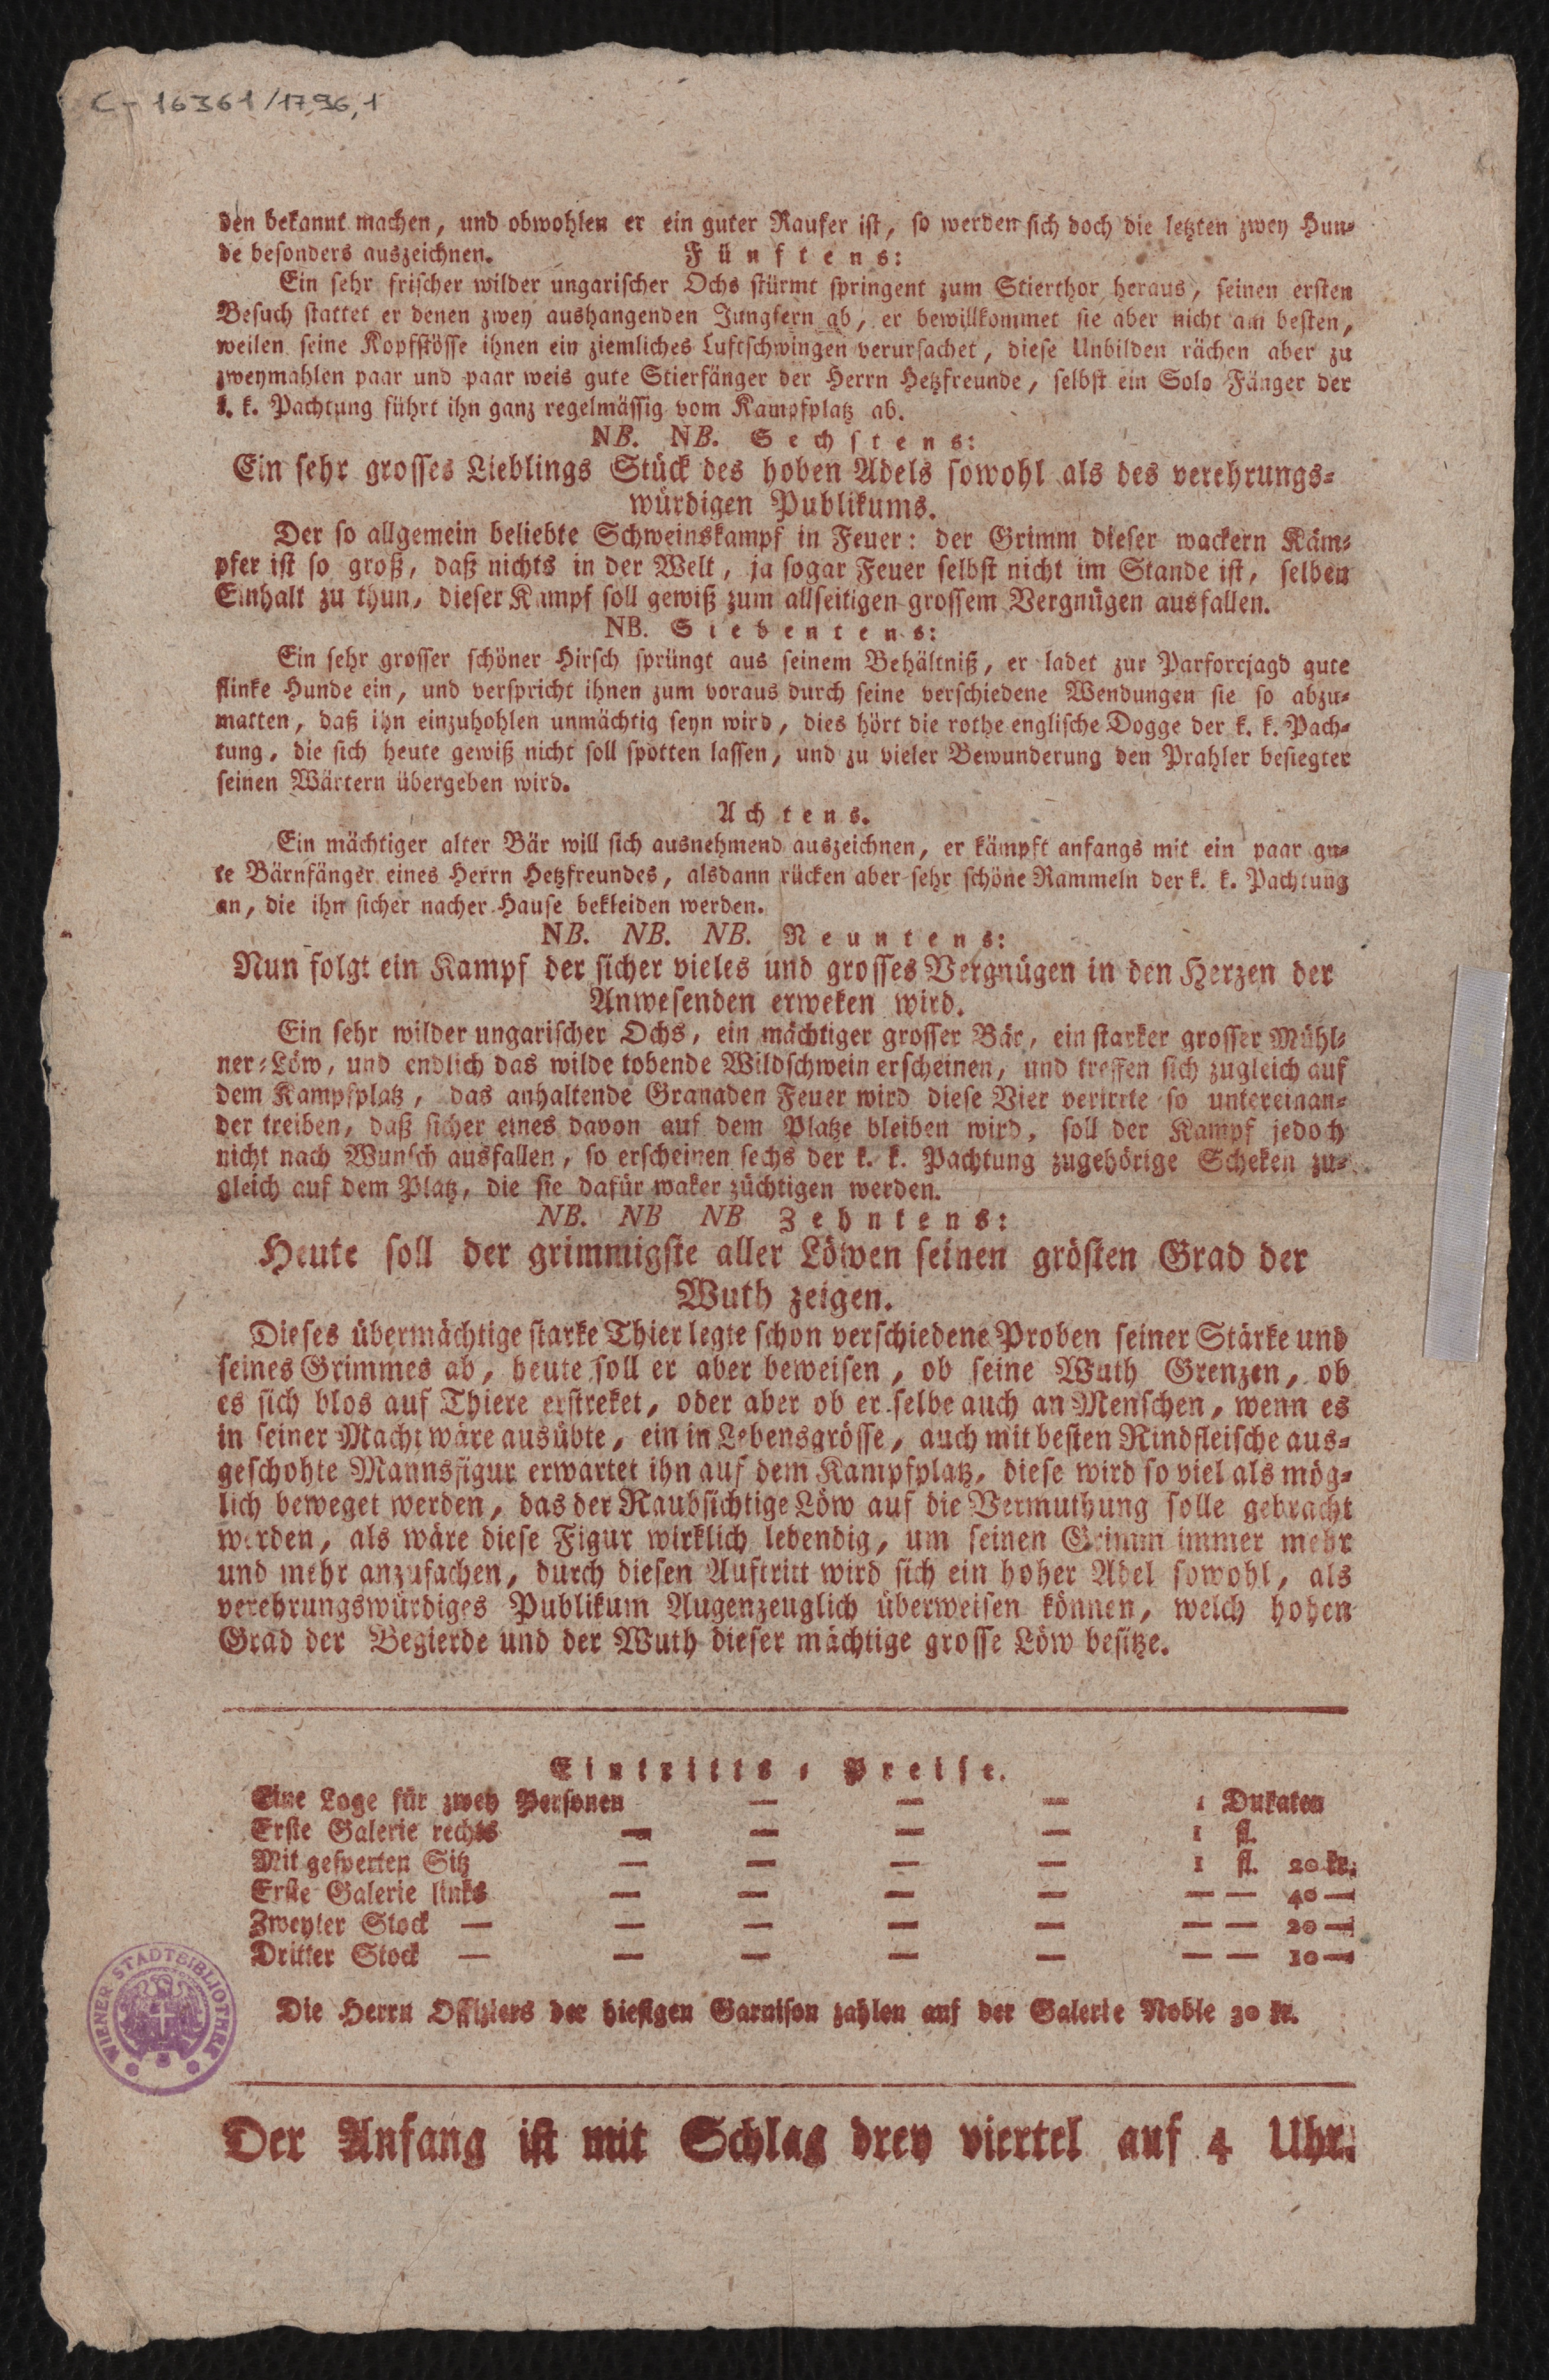 C-16361/1796,1
den bekannt machen, und obwohlen er ein guter Raufer ist, so werden sich doch die letzten zwey Hun-
de besonders auszeichnen. Fünftens:
Ein sehr frischer wilder ungarischer Ochs stürmt springent zum Stierthor heraus, seinen ersten
Besuch stattet er denen zwey aushangenden Jungfern ab, er bewillkommet sie aber nicht am besten,
weilen seine Kopfstösse ihnen ein ziemliches Luftschwingen verursachet, diese Unbilden rächen aber zu
zweymahlen paar und paar weis gute Stierfänger der Herrn Hetzfreunde, selbst ein Solo Fänger der
k. k. Pachtung führt ihn ganz regelmässig vom Kampfplatz ab.
NB. NB. Sechstens:
Ein sehr grosses Lieblings Stück des hohen Adels sowohl als des verehrungs-
würdigen Publikums.
Der so allgemein beliebte Schweinskampf in Feuer: der Grimm dieser wackern Käm-
pfer ist so groß, daß nichts in der Welt, ja sogar Feuer selbst nicht im Stande ist, selben
Einhalt zu thun, dieser Kampf soll gewiß zum allseitigen grossem Vergnügen ausfallen.
NB. Siebentens:
Ein sehr grosser schöner Hirsch sprüngt aus seinem Behältniß, er ladet zur Parforcjagd gute
flinke Hunde ein, und verspricht ihnen zum voraus durch seine verschiedene Wendungen sie so abzu-
matten, daß ihn einzuhohlen unmächtig seyn wird, dies hört die rothe englische Dogge der k. k. Pach-
tung, die sich heute gewiß nicht soll spotten lassen, und zu vieler Bewunderung den Prahler besiegter
seinen Wärtern übergeben wird.
Achtens.
Ein mächtiger alter Bär will sich ausnehmend auszeichnen, er kämpft anfangs mit ein paar gu-
te Bärnfänger eines Herrn Hetzfreundes, alsdann rücken aber sehr schöne Rammeln der k. k. Pachtung
an, die ihn sicher nacher Hause bekleiden werden.
NB. NB. NB. Neuntens:
Nun folgt ein Kampf der sicher vieles und grosses Vergnügen in den Herzen der
Anwesenden erweken wird.
Ein sehr wilder ungarischer Ochs, ein mächtiger grosser Bär, ein starker grosser Mühl-
ner-Löw, und endlich das wilde tobende Wildschwein erscheinen, und treffen sich zugleich auf
dem Kampfplatz, das anhaltende Granaden Feuer wird diese Vier verirrte so untereinan-
der treiben, daß sicher eines davon auf dem Platze bleiben wird, soll der Kampf jedoch
nicht nach Wunsch ausfallen, so erscheinen sechs der k. k. Pachtung zugehörige Scheken zu-
gleich auf dem Platz, die sie dafür waker züchtigen werden.
NB. NB NB Zehntens:
Heute soll der grimmigste aller Löwen seinen grösten Grad der
Wuth zeigen.
Dieses übermächtige starke Thier legte schon verschiedene Proben seiner Stärke und
seines Grimmes ab, heute soll er aber beweisen, ob seine Wuth Grenzen, ob
es sich blos auf Thiere erstreket, oder aber ob er selbe auch an Menschen, wenn es
in seiner Macht wäre ausübte, ein in Lebensgrösse, auch mit besten Rindfleische aus-
geschohte Mannsfigur erwartet ihn auf dem Kampfplatz, diese wird so viel als mög-
lich beweget werden, das der Raubsichtige Löw auf die Vermuthung solle gebracht
werden, als wäre diese Figur wirklich lebendig, um seinen Grimm immer mehr
und mehr anzufachen, durch diesen Auftritt wird sich ein hoher Adel sowohl, als
verehrungswürdiges Publikum Augenzeuglich überweisen können, welch hohen
Grad der Begierde und der Wuth dieser mächtige grosse Löw besitze.
Eintritts-Preise.
Eine Loge für zwey Personen — — — 1 Dukaten
Erste Galerie rechts — — — — 1 fl.
Mit gesperten Sitz — — — — 1 fl. 20 kr.
Erste Galerie links — — — — — — 40 —
Zweyter Stock — — — — — — — 20 —
Dritter Stock — — — — — — — 10 —
Die Herrn Offiziers der hiesigen Garnison zahlen auf der Galerie Noble 30 kr.
WIENER STADTBIBLIOTHEK
Der Anfang ist mit Schlag drey viertel auf 4 Uhr.